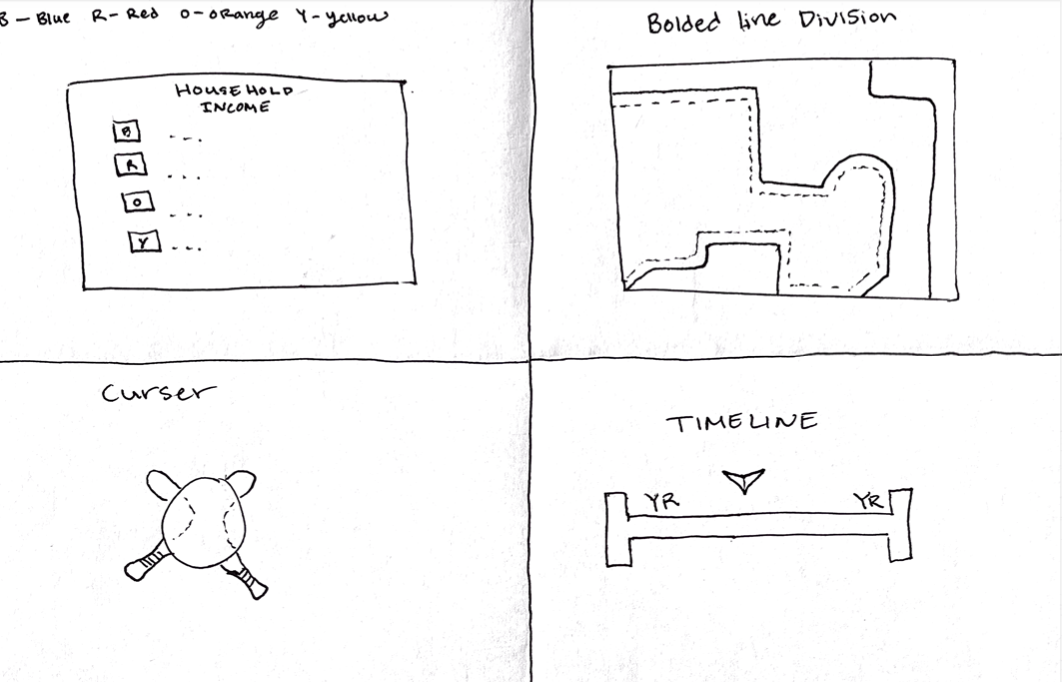 B - Blue R - Red O - oRange Y - yellow
HOUSEHOLD
INCOME
B ...
R ...
O ...
Y ...
Bolded line Division
Curser
TIMELINE
YR YR